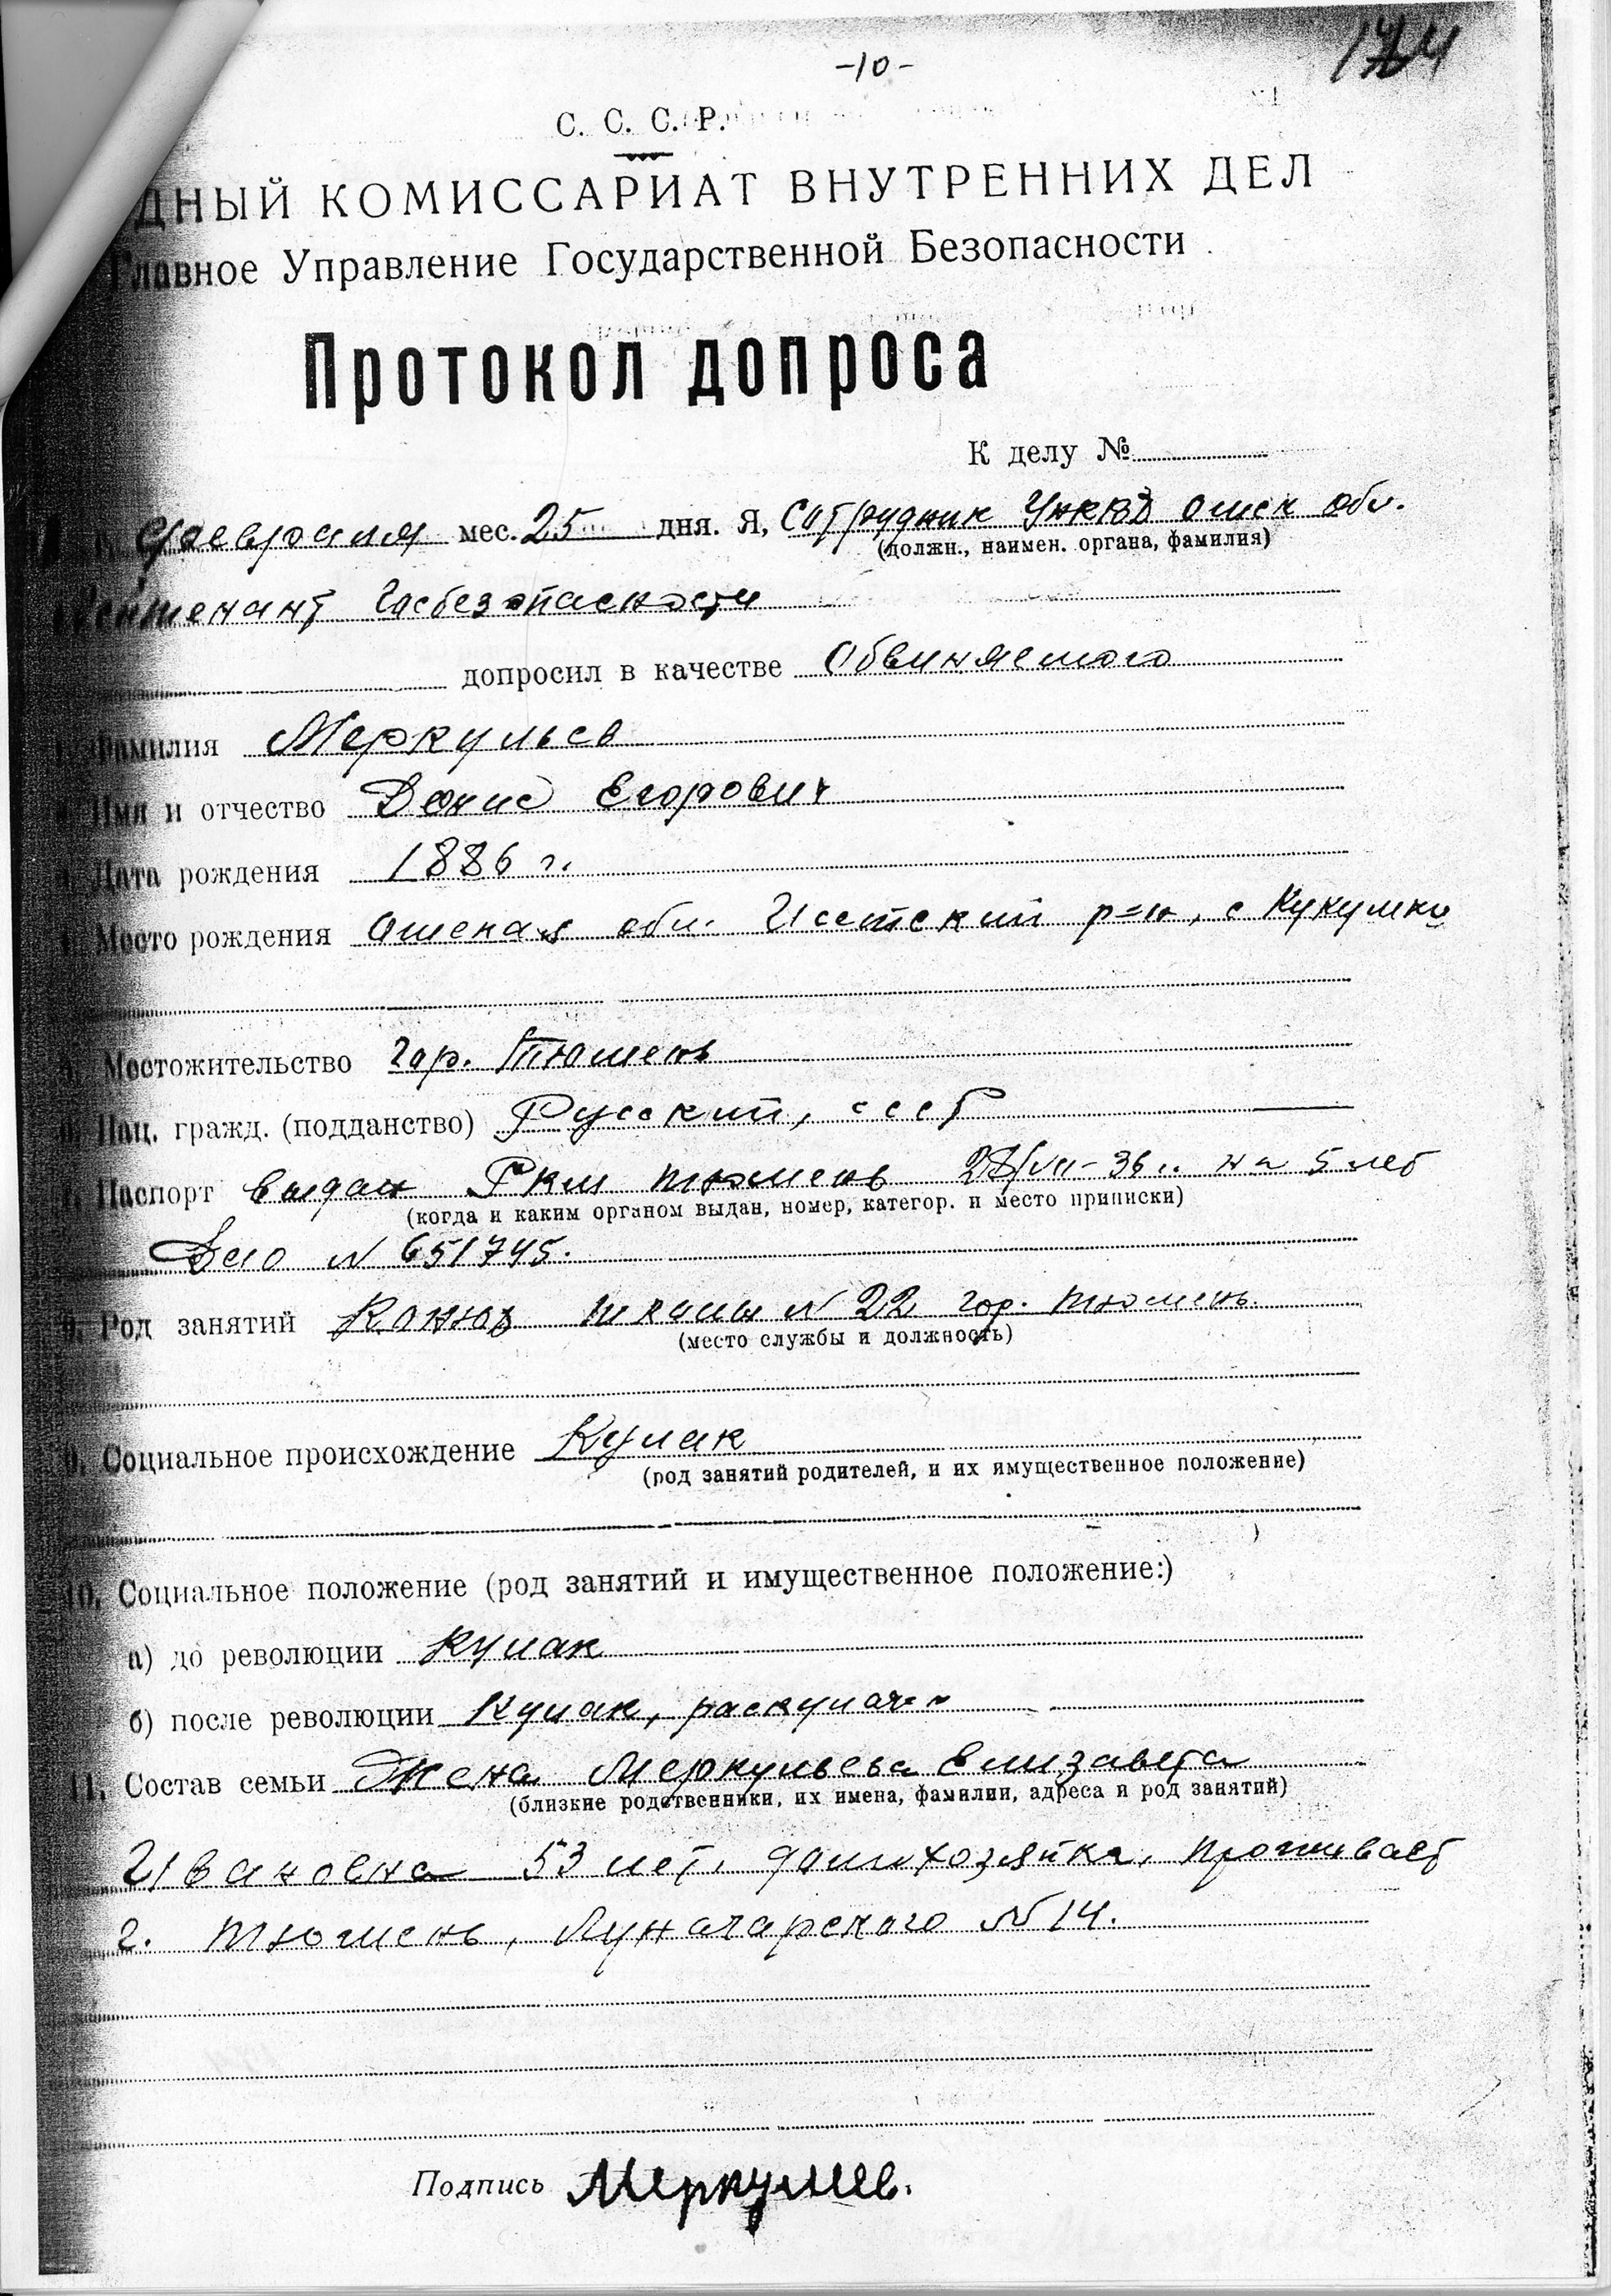 -10-
С. С. С. Р.
ДНЫЙ КОМИССАРИАТ ВНУТРЕННИХ ДЕЛ
Главное Управление Государственной Безопасности
Протокол допроса
К делу №
февраля мес. 25 дня. Я, Сотрудник УНКВД Омск обл.
(должн., наимен. органа, фамилия)
Лейтенант Госбезопасности
допросил в качестве Обвиняемого
1. Фамилия Меркульев
2. Имя и отчество Денис Егорович
3. Дата рождения 1886 г.
4. Место рождения Омская обл. Исетский р=н, с Кукушки
5. Местожительство гор. Тюмень
6. Нац. гражд. (подданство) Русский, СССР
7. Паспорт выдан РКМ Тюмень 28/VII-36 г. на 5 лет
(когда и каким органом выдан, номер, категор. и место приписки)
Дело N 651745.
8. Род занятий Конюх школы N 22 гор. Тюмень
(место службы и должность)
9. Социальное происхождение Кулак
(род занятий родителей, и их имущественное положение)
10. Социальное положение (род занятий и имущественное положение:)
а) до революции Кулак
б) после революции Кулак, раскулачен
11. Состав семьи Жена Меркульева Елизавета
(близкие родственники, их имена, фамилии, адреса и род занятий)
Ивановна 53 лет, домохозяйка, проживает
г. Тюмень, Луначарского N 14.
Подпись Меркулев.